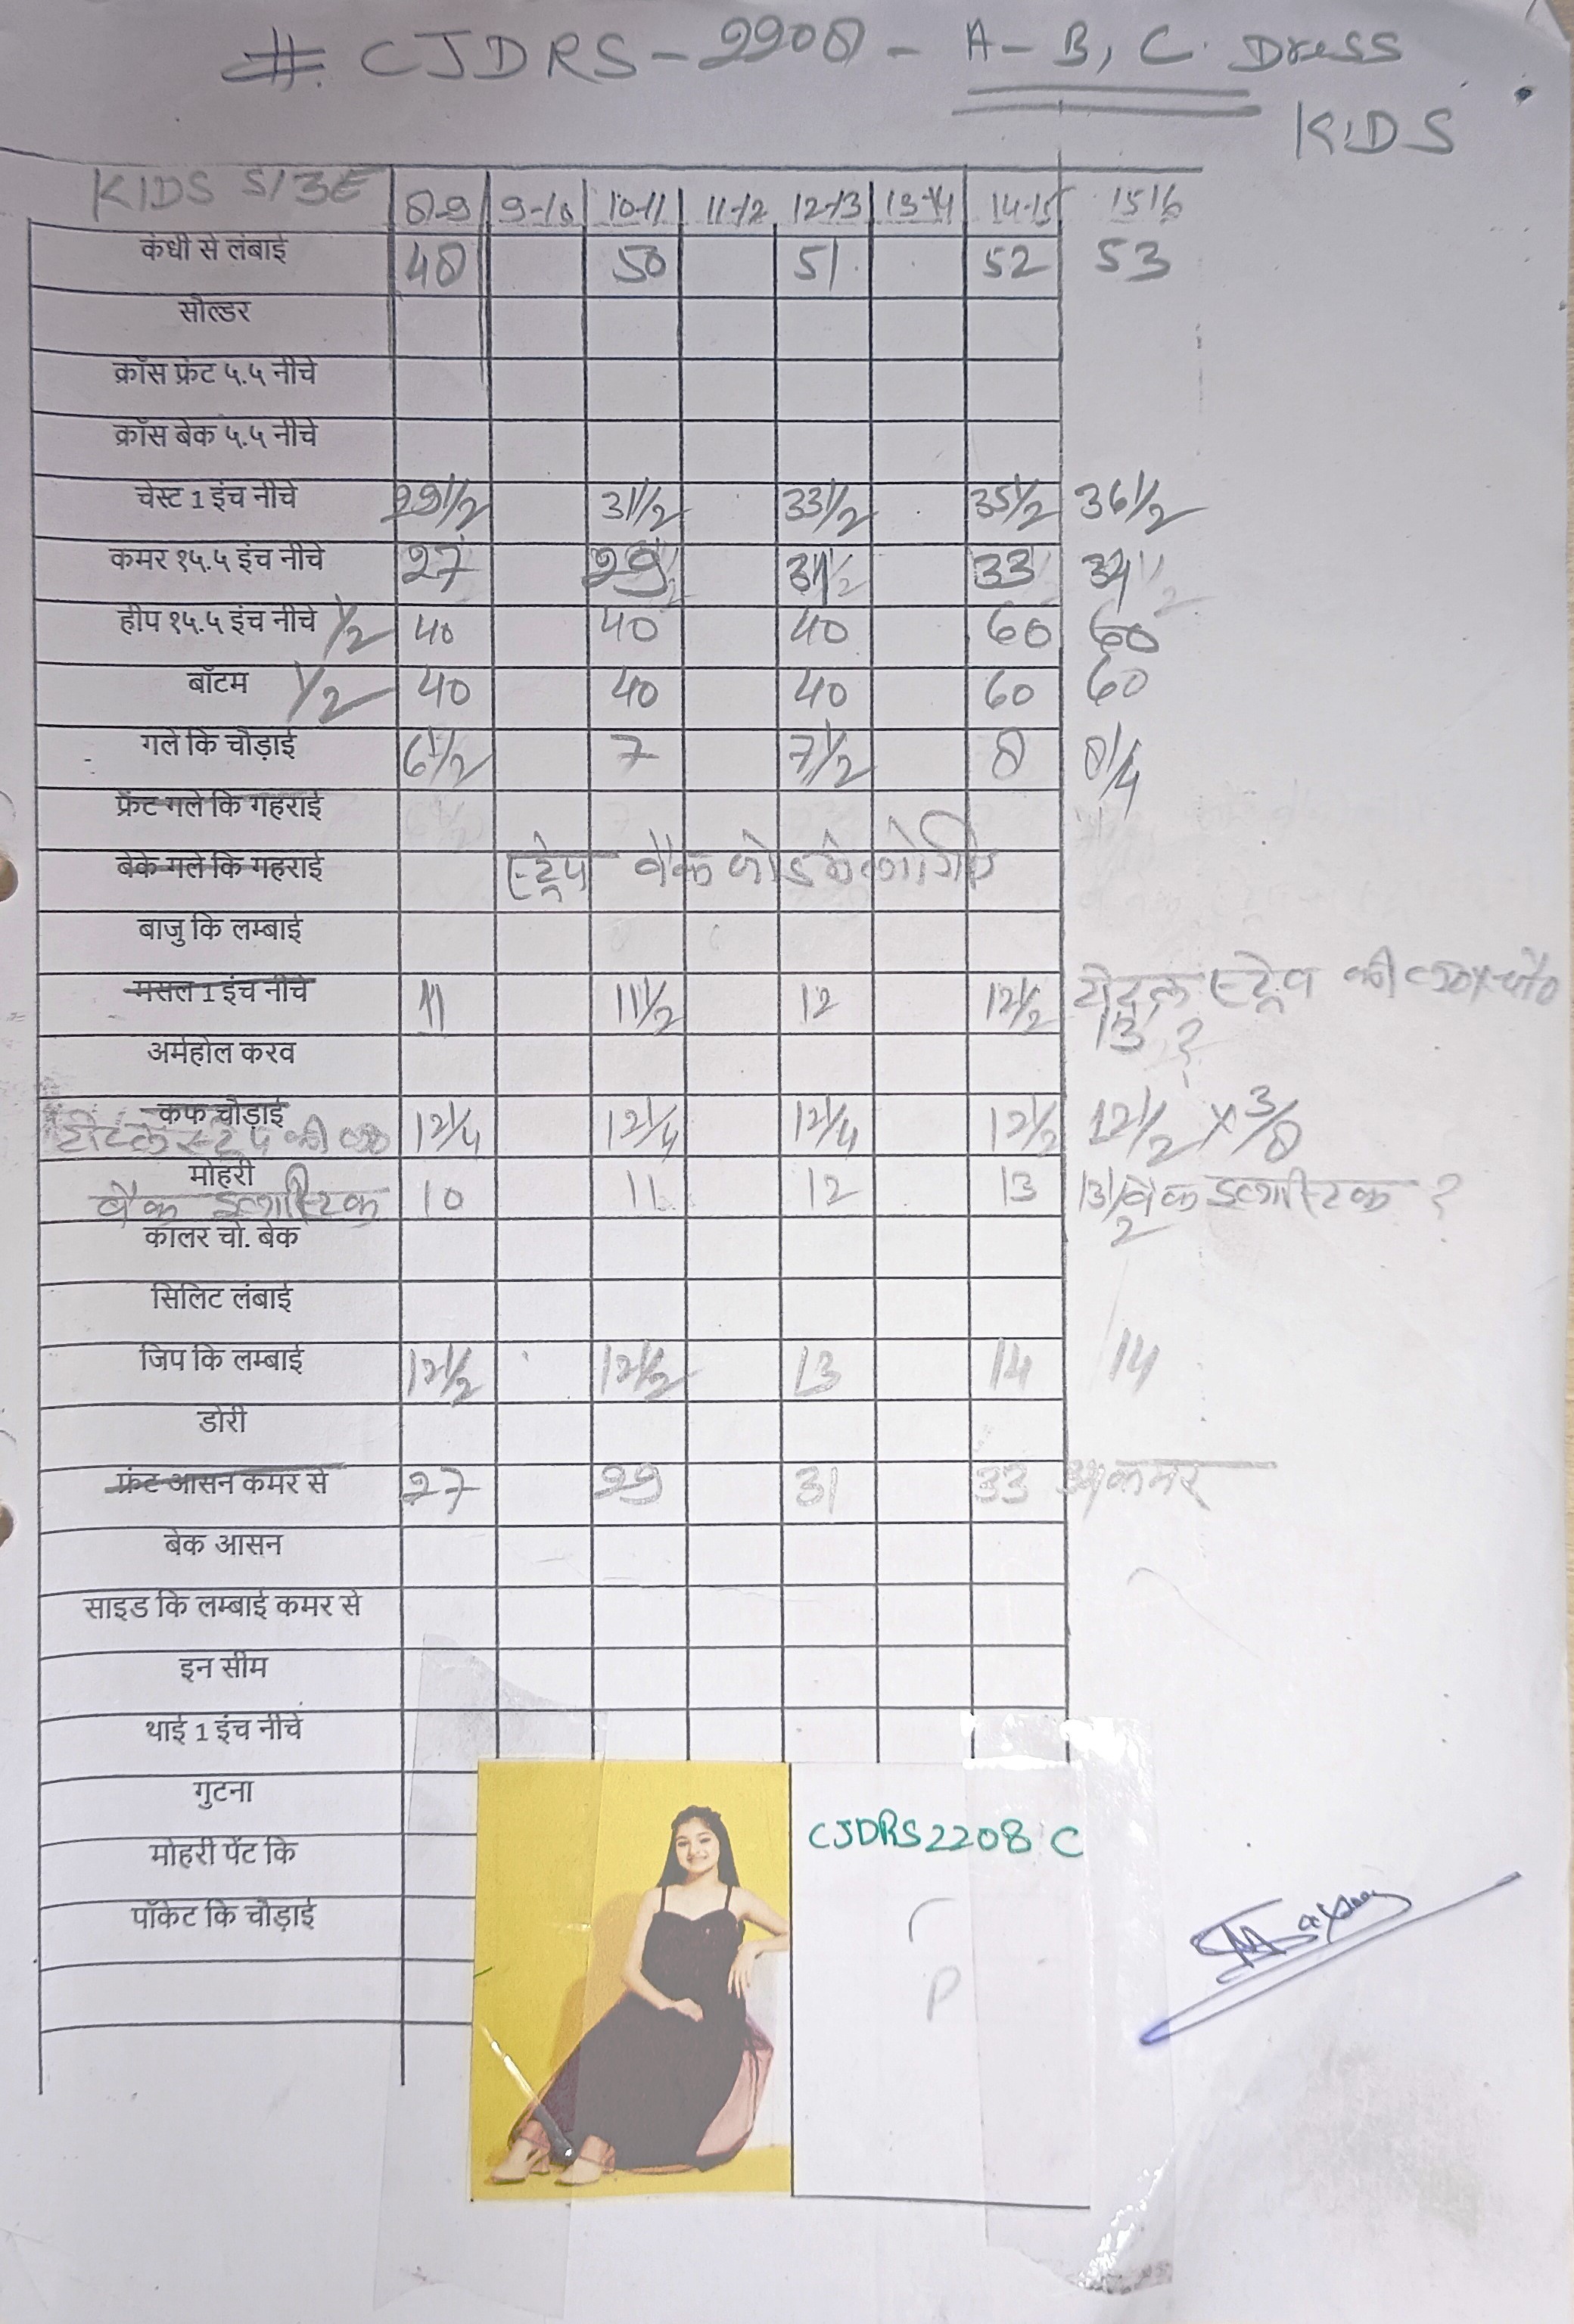 # CJDRS-2208 - A-B, C. Dress
KIDS
KIDS SIZE 8-9 9-10 10-11 11-12 12-13 13-14 14-15 15-16
कंधी से लंबाई 48 50 51 52 53
सोल्डर
क्रॉस फ्रंट ५.५ नीचे
क्रॉस बेक ५.५ नीचे
चेस्ट 1 इंच नीचे 29 1/2 31 1/2 33 1/2 35 1/2 36 1/2
कमर १५.५ इंच नीचे 27 29 1/2 31 1/2 33 34 1/2
हीप १५.५ इंच नीचे 1/2 40 40 40 60 60
बॉटम 1/2 40 40 40 60 60
गले कि चौड़ाई 6 1/2 7 7 1/2 8 8 1/4
फ्रंट गले कि गहराई
बेके गले कि गहराई स्ट्रेप बैक
बाजु कि लम्बाई
मसल 1 इंच नीचे 11 11 1/2 12 12 1/2 टोटल स्ट्रेप की
13 ?
अर्महोल करव
कफ चौड़ाई
टोटल स्ट्रेप की 12 1/4 12 1/4 12 1/4 12 1/2 12 1/2 x 3/8
मोहरी
बैक इलास्टिक 10 11 12 13 13 1/2 बैक इलास्टिक ?
कालर चो. बेक
सिलिट लंबाई
जिप कि लम्बाई 12 1/2 12 1/2 13 14 14
डोरी
फ्रंट आसन कमर से 27 29 31 33 34 कमर
बेक आसन
साइड कि लम्बाई कमर से
इन सीम
थाई 1 इंच नीचे
गुटना
मोहरी पेंट कि
पॉकेट कि चौड़ाई
CJDRS2208 C
P